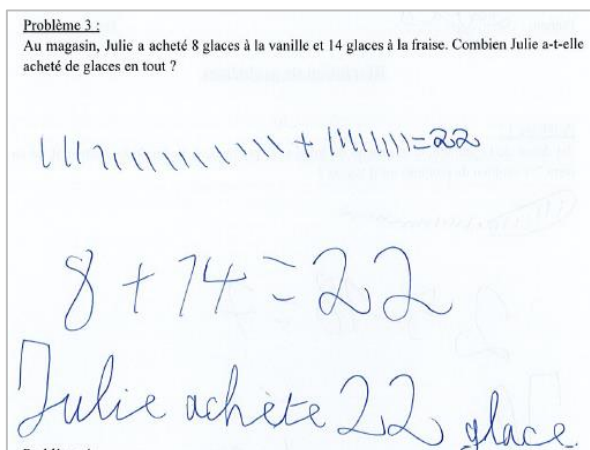 Problème 3 :
Au magasin, Julie a acheté 8 glaces à la vanille et 14 glaces à la fraise. Combien Julie a-t-elle
acheté de glaces en tout ?
||||||||||||||+||||||||=22
8+14=22
Julie achète 22 glace.